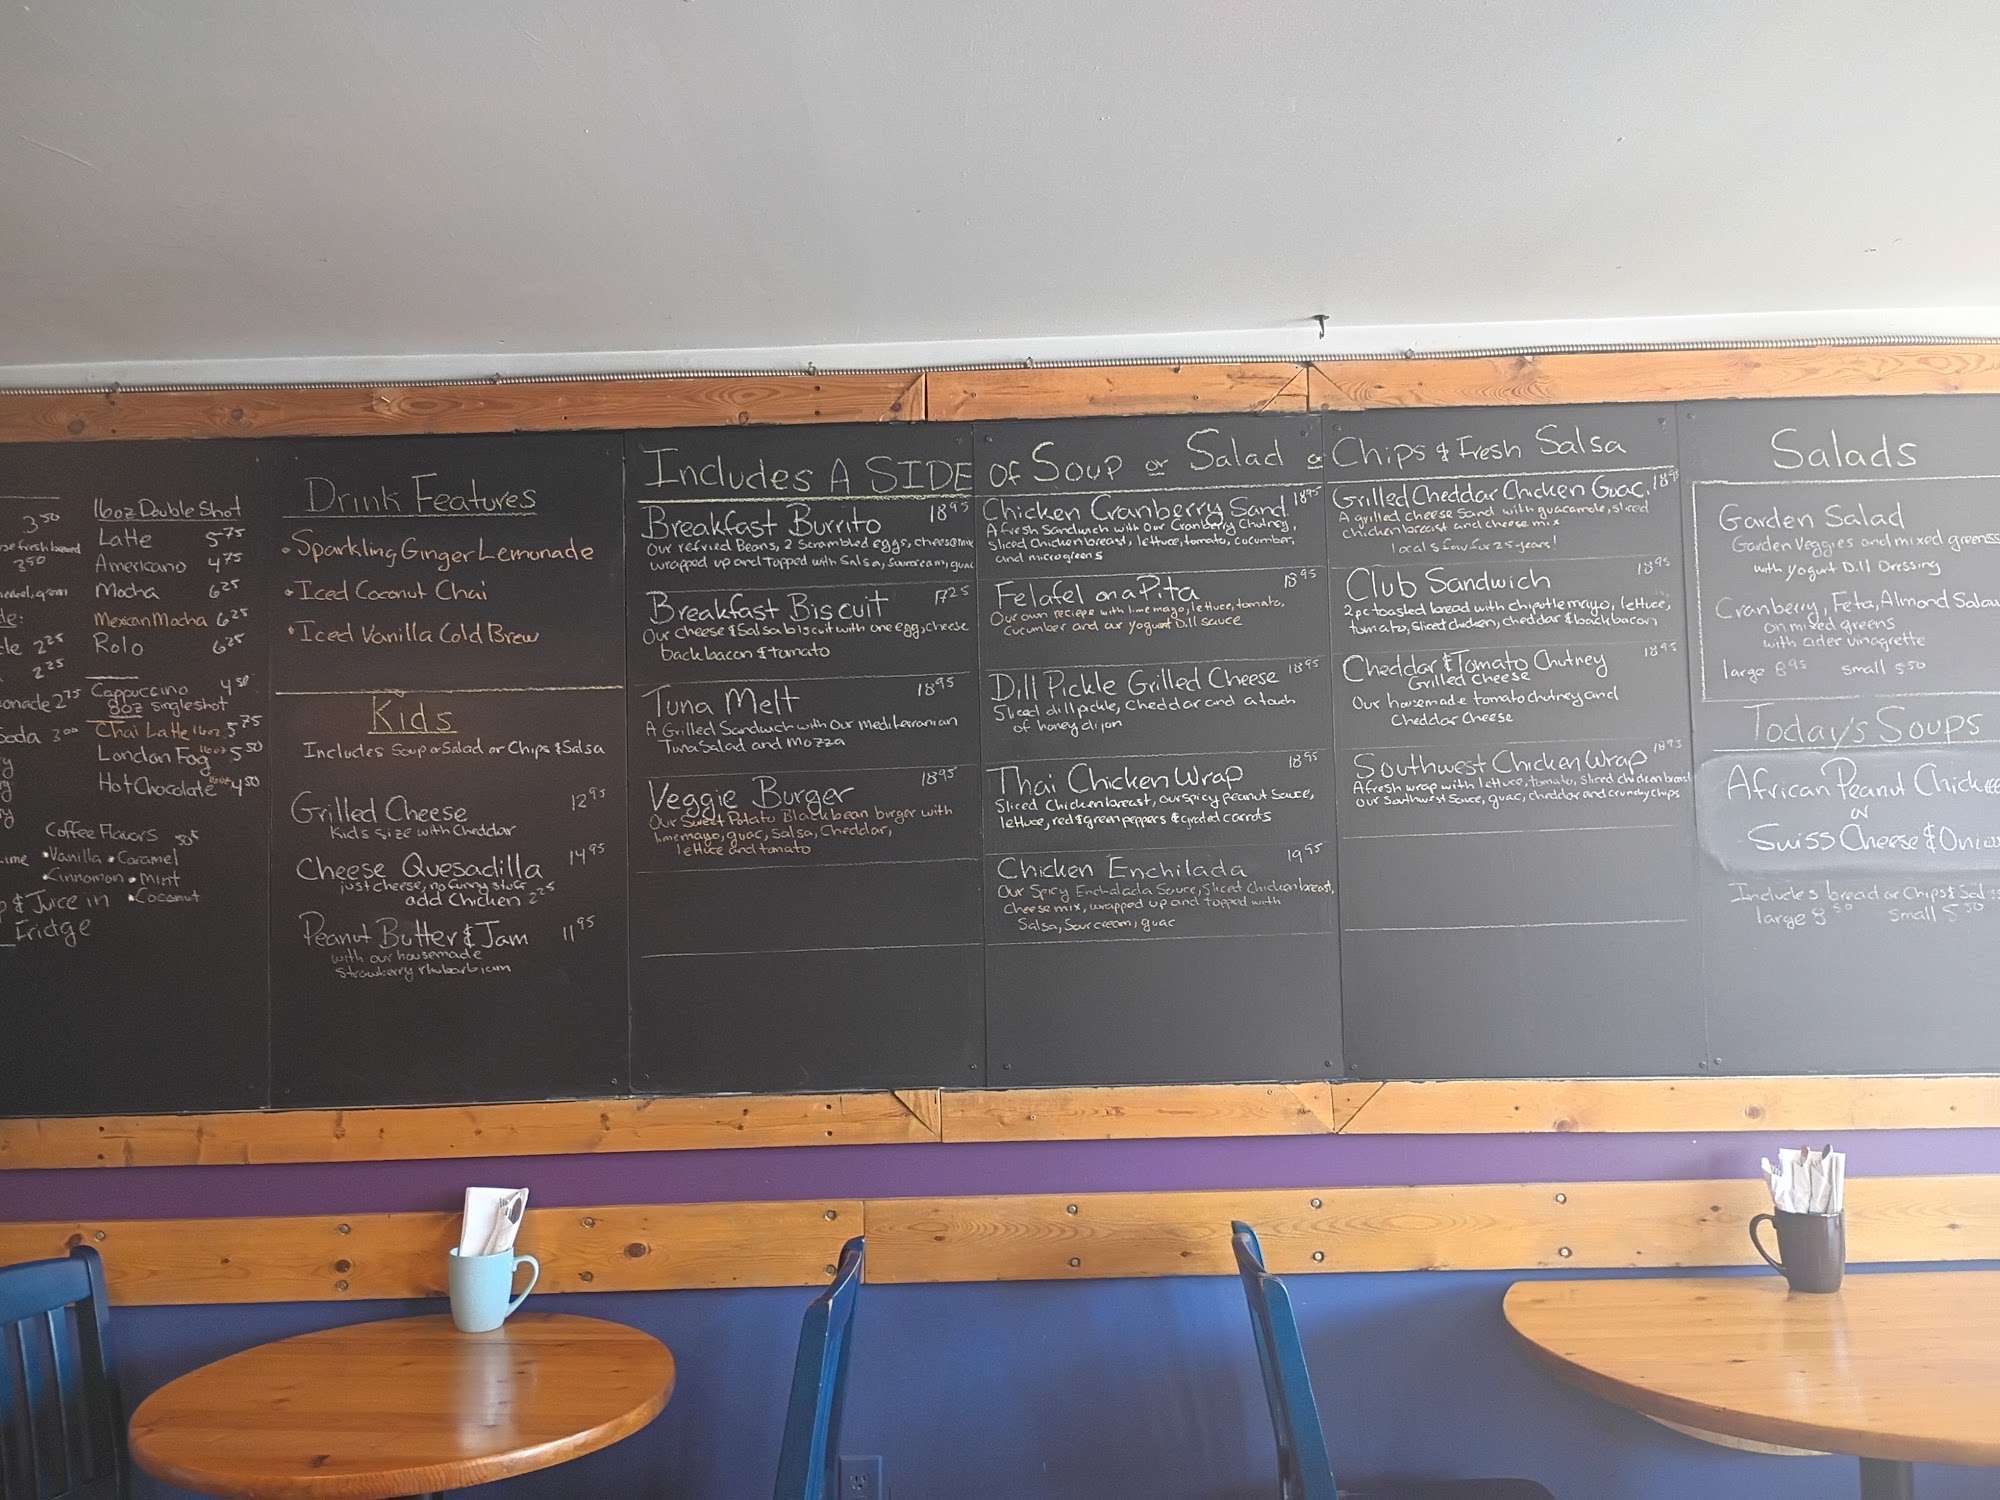 3.50
3.50
2.25
2.25
2.75
Soda 3.00
& Juice in
Fridge
16oz Double Shot
Latte 5.75
Americano 4.75
Mocha 6.25
Mexican Mocha 6.25
Rolo 6.25
Cappuccino 4.50
8oz single shot
Chai Latte 16oz 5.75
London Fog 16oz 5.50
Hot Chocolate 4.50
Coffee Flavors
• Vanilla • Caramel
• Cinnamon • Mint
• Coconut
Drink Features
• Sparkling Ginger Lemonade
• Iced Coconut Chai
• Iced Vanilla Cold Brew
Kids
Includes Soup or Salad or Chips & Salsa
Grilled Cheese 12.95
Kids size with Cheddar
Cheese Quesadilla 14.95
just cheese, no funny stuff
add Chicken 2.25
Peanut Butter & Jam 11.95
with our housemade
Strawberry rhubarb jam
Includes A SIDE of Soup or Salad or Chips & Fresh Salsa
Breakfast Burrito 18.95
Our refried Beans, 2 Scrambled eggs, cheesemix
wrapped up and Topped with Salsa, sourcream, guac
Breakfast Biscuit 17.25
Our cheese & Salsa biscuit with one egg, cheese
back bacon & tomato
Tuna Melt 18.95
A Grilled Sandwich with Our Mediterranian
Tuna Salad and Mozza
Veggie Burger 18.95
Our Sweet Potato Black bean burger with
lime mayo, guac, Salsa, Cheddar,
lettuce and tomato
Chicken Cranberry Sand 18.95
A fresh Sandwich with Our Cranberry Chutney,
Sliced Chicken breast, lettuce, tomato, cucumber,
and microgreens
Felafel on a Pita 18.95
Our own reciepe with lime mayo, lettuce, tomato,
cucumber and our yogurt Dill sauce
Dill Pickle Grilled Cheese 18.95
Sliced dill pickle, Cheddar and a touch
of honey dijon
Thai Chicken Wrap 18.95
Sliced Chicken breast, our spicy peanut sauce,
lettuce, red & green peppers & grated carrots
Chicken Enchilada 19.95
Our Spicy Enchalada Sauce, Sliced Chicken breast,
Cheese mix, wrapped up and topped with
Salsa, Sour cream, guac
Grilled Cheddar Chicken Guac. 18.95
A grilled cheese Sand with guacamole, sliced
chicken breast and cheese mix
locals fav for 25 years!
Club Sandwich 18.95
2 pc toasted bread with chipotle mayo, lettuce,
tomato, sliced chicken, cheddar & back bacon
Cheddar & Tomato Chutney 18.95
Grilled Cheese
Our housemade tomato chutney and
Cheddar Cheese
Southwest Chicken Wrap 18.95
A fresh wrap with lettuce, tomato, sliced chicken breast
our Southwest Sauce, guac, cheddar and crunchy chips
Salads
Garden Salad
Garden Veggies and mixed greens
with yogurt Dill Dressing
Cranberry, Feta, Almond Salad
on mixed greens
with cider vinagrette
large 8.95 small 5.50
Today's Soups
African Peanut Chicken
or
Swiss Cheese & Onion
Includes bread or Chips & Sal
large 8.50 small 5.50